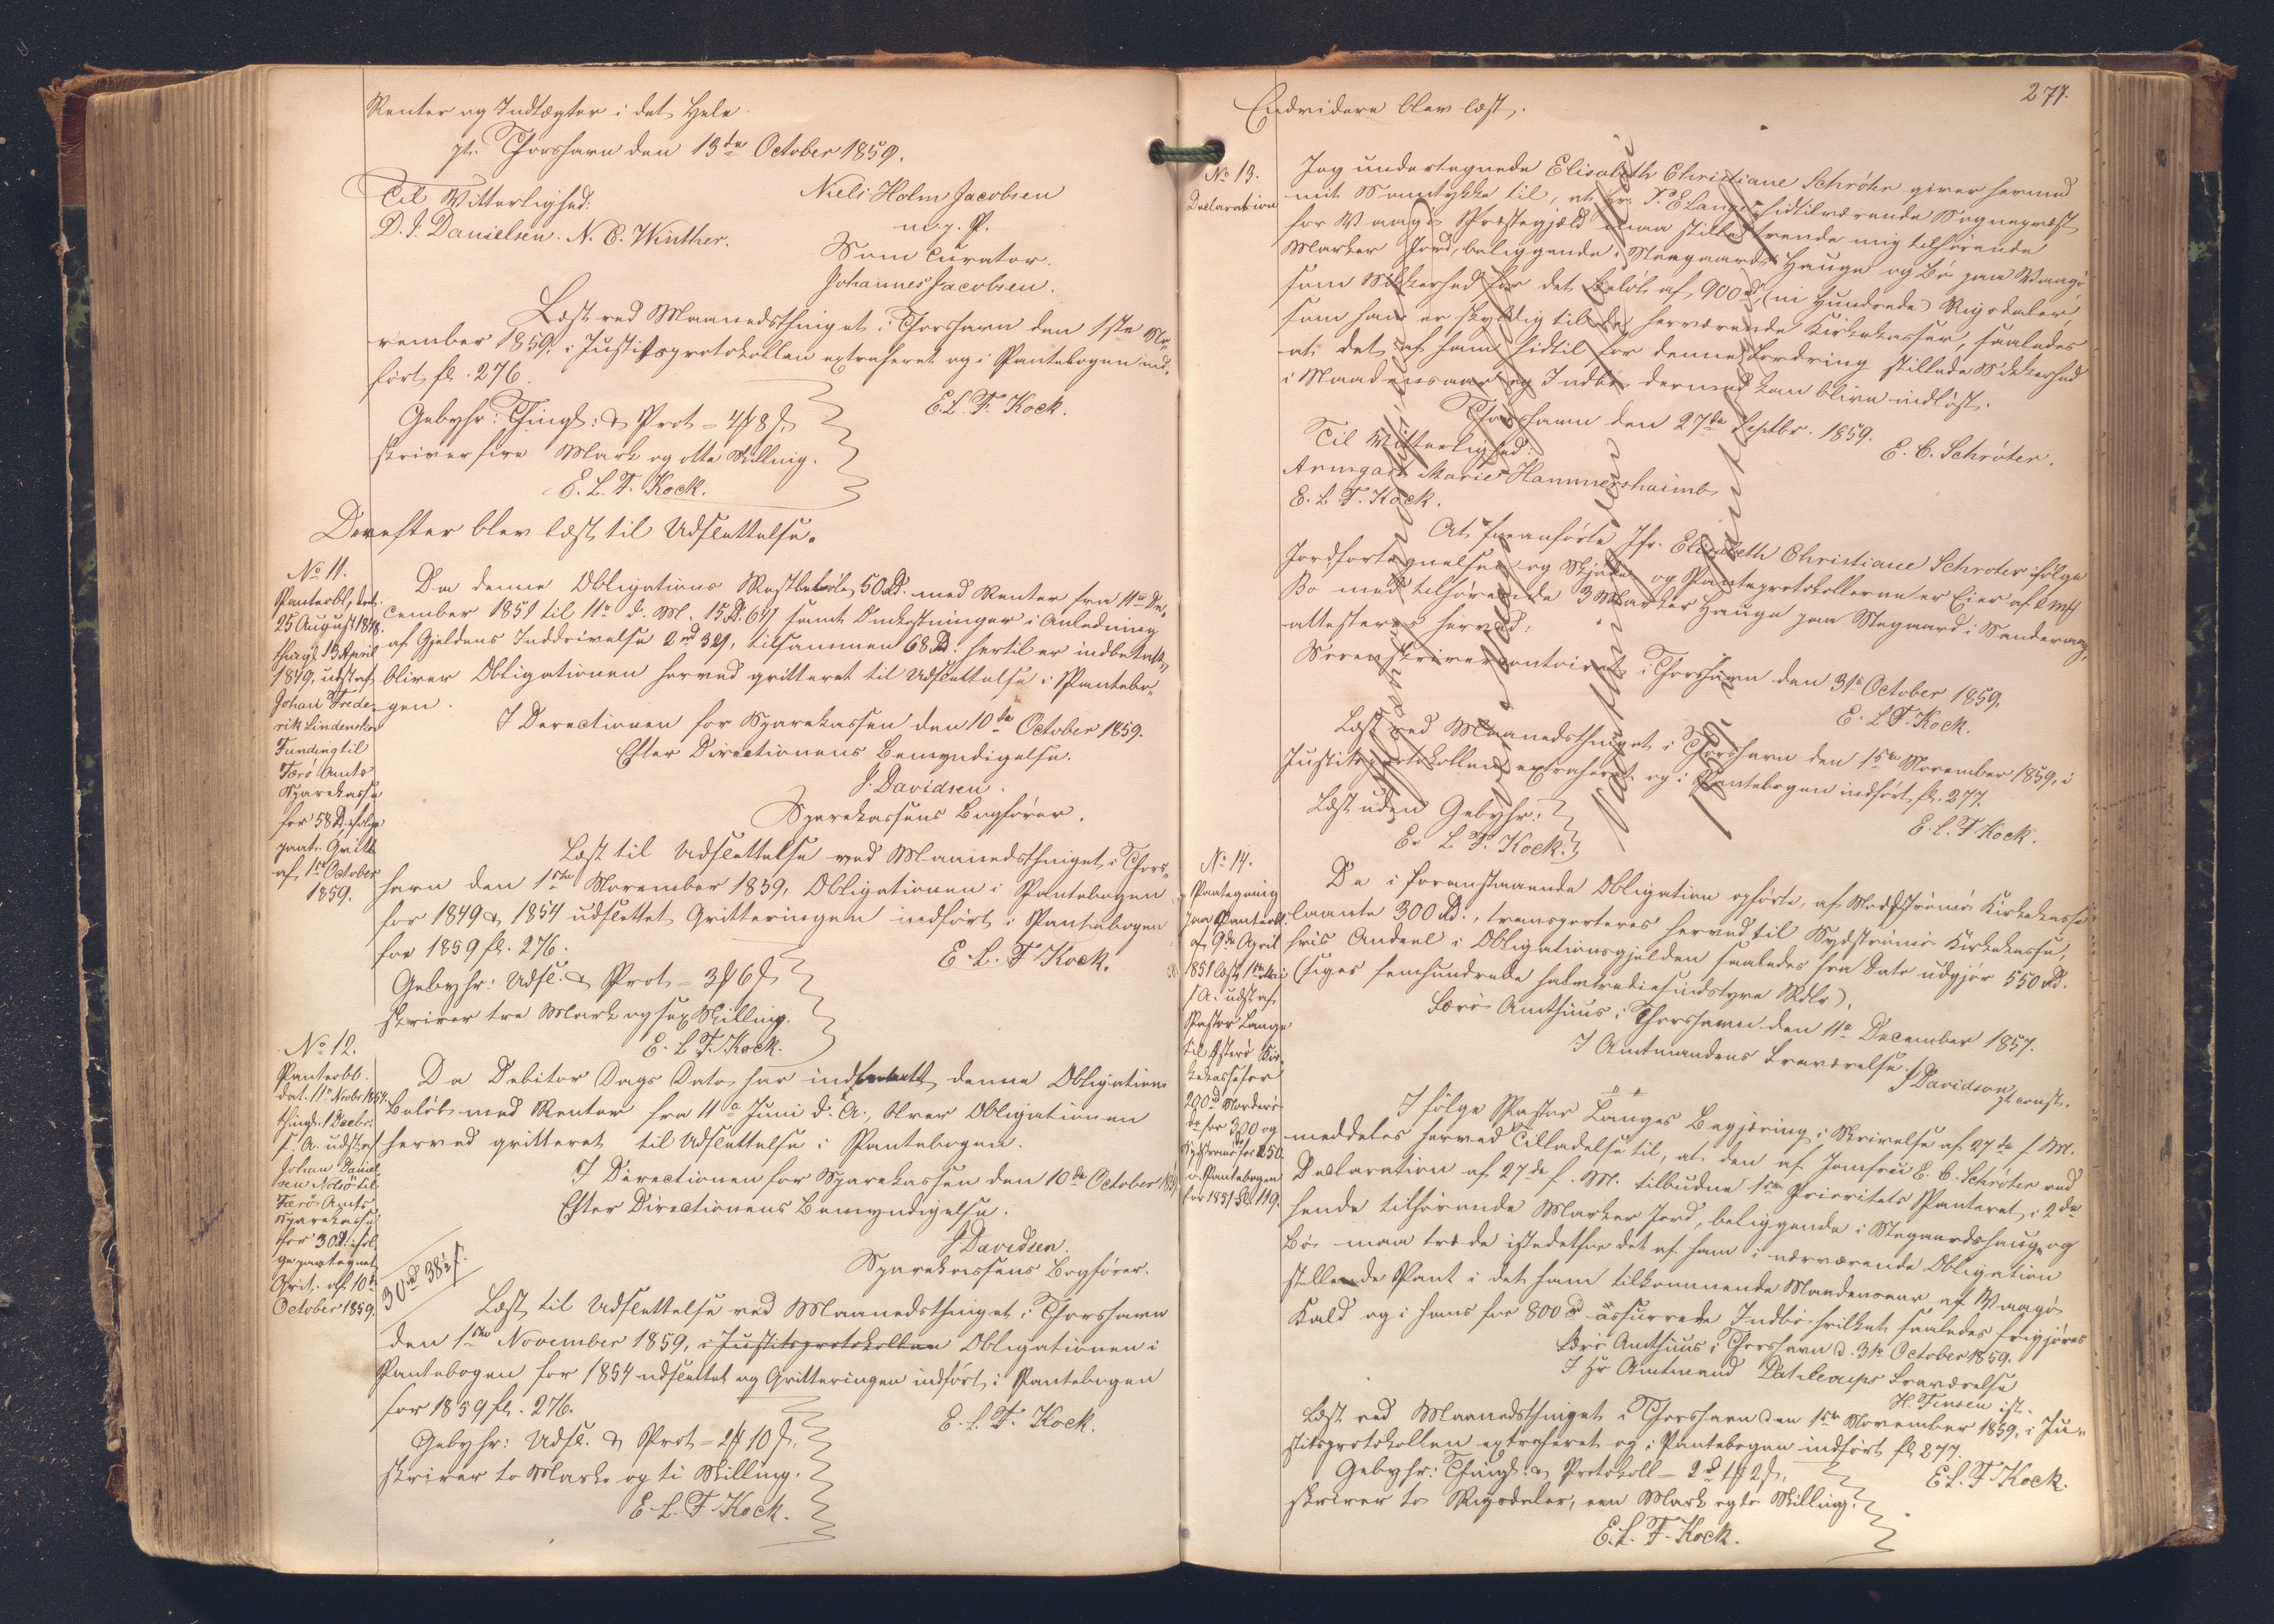 Renter og Indtægter i det Hele.
pt. Thorshavn den 13de October 1859.
Til Vitterlighed:
Niels Holm Jacobsen
D. J. Danielsen. N. C. Winther.
m. f. P.
Som Curator.
Johannes Jacobsen.
Læst ved Maanedsthinget i Thorshavn den 1ste No-
vember 1859, i Justitsprotokollen extraheret og i Pantebogen ind-
ført fl. 276.
E. L. F. Kock.
Gebyhr: Thingl: & Prot = 4 ℳ 8 ß,
skriver fire Mark og otte Skilling.
E. L. F. Kock.
Derefter blev læst til Udslettelse.
No 11.
Panteobl. dat.
25 August 1848.
thingl. 13 April
1849, udst. af
Johan Frede-
rik Lindenskov
Funding til
Færö Amts
Sparekasse
for 58 Rd. ifølge
paat. Qvitt.
af 10de October
1859.
Da denne Obligations Restbeløb 50 Rd. med Renter fra 11te De-
cember 1851 til 11te d. M. 15 Rd. 64 ß samt Omkostninger i Anledning
af Gjeldens Inddrivelse 2 rd 32 ß, tilsammen 68 Rd. hertil er indbetalt,
bliver Obligationen herved qvitteret til Udslettelse i Pantebo-
gen.
I Derectionen for Sparekassen den 10de October 1859.
Efter Directionens Bemyndigelse.
J. Davidsen.
Sparekassens Bogfører.
Læst til Udslettelse ved Maanedsthinget i Thors-
havn den 1ste November 1859, Obligationen i Pantebogen
for 1849 & 1854 udslettet Qvitteringen indført i Pantebogen
for 1859 fl. 276.
E. L. F. Kock.
Gebyhr: Udsl. & Prot = 3 ℳ 6 ß
skriver tre Mark og sex Skilling.
E. L. F. Kock.
No 12.
Panteobl.
dat. 11te Novbr 1854
thingl. 1 Decbr.
s. A. udst. af
Johan Daniel-
sen Nolsö til
Færö Amts
Sparekasse
for 30 Rd. iføl-
ge paategnet
Qvit. af 10de
October 1859.
Da Debitor Dags Dato har indbetalt denne Obligations
Beløb med Renter fra 11te Juni d. A., bliver Obligationen
herved qvitteret til Udslettelse i Pantebogen.
I Directionen for Sparekassen den 10de October 1859
Efter Directionens Bemyndigelse.
J. Davidsen.
Sparekassens Bogfører.
30 rd 38½ ß.
Læst til Udslettelse ved Maanedsthinget i Thorshavn
den 1ste November 1859, i Justitsprotokollen Obligationen i
Pantebogen for 1854 udslettet og Qvitteringen indført i Pantebogen
for 1859 fl. 276.
E. L. F. Kock.
Gebyhr: Udsl. & Prot = 2 ℳ 10 ß,
skriver to Mark og ti Skilling.
E. L. F. Kock.
277.
Endvidere blev læst.
No 13.
Declaration
Jeg undertegnede Elisabeth Christiane Schröter giver hermed
mit Samtykke til, at Hr. P. E. Lange, hidtilværende Sognepræst
for Waagö Præstegjæld maa stille tvende mig tilhørende
Marker Jord, beliggende i Steegaards Hauge og Bö paa Waagö
som Sikkerhed for det Beløb af 900 rd, (ni Hundrede) Rigsdaler,
som han er skyldig til de herværende Kirkekasser, saaledes
at det af ham hidtil for denne Fordring stillede Sikkerhed
i Naadensaar og Indbo dermed kan blive indløst.
Thorshavn den 27de Septbr. 1859.
Til Vitterlighed:
E. C. Schröter.
Armgart Marie Hammershaimb
E. L. F. Kock.
At foranførte Jfr. Elisabeth Christiane Schröter ifølge
Jordfortegnelsen og Skjøde og Panteprotokollerne er Eier af
Bo med tilhørende 3 Marker Hauge paa Stegaard i Sandevaag,
attesteres herved.
Sorenskrivercontoiret i Thorshavn den 31te October 1859.
E. L. F. Kock.
Læst ved Maanedsthinget i Thorshavn den 1ste November 1859, i
Justitsprotokollen extraheret og i Pantebogen indført fl. 277.
Læst uden Gebyhr.
E. L. F. Kock.
E. L. F. Kock.
No 14.
Paategning
paa Panteobl.
af 9de April
1851 læst 1ste Mai
s. A. udst. af
Pastor Lange
til Østerö Kir-
kekasse for
200 rd Norderö
do for 300 og
Sydströmö for 250.
i Pantebogen
for 1851 fl. 119.
De i foranstaaende Obligation opførte, af Nordströmö Kirkekasse
laante 300 Rd., transporteres herved til Sydströmö Kirkekasse,
hvis Andeel i Obligationsgjelden saaledes fra Dato udgjør 550 Rd.
(siger femhundrede halvtrediesindstyve Rdlr).
Færö Amthuus i Thorshavn den 11te December 1857.
I Amtmandens Fraværelse.
J. Davidson
pt. const.
I følge Pastor Langes Begjæring i Skrivelse af 27de f. M.
meddeles herved Tilladelse til, at den af Jomfrü E. C. Schröter ved
Declaration af 27de f. M. tilbudne 1ste Prioritets Panteret i 2de
hende tilhørende Marker Jord, beliggende i Stegaardshauge og
Bö maa træde istedetfor det af ham i nærværende Obligation
stillende Pant i det ham tilkommende Naadensaar af Waagö
Kald og i hans for 800 rd assurrede Indbo hvilket saaledes frigjøres
Færö Amthuus i Thorshavn d. 31te October 1859.
I Hr Amtmand Dahlerups Fraværelse
H. Finsen
Læst ved Maanedsthinget i Thorshavn den 1ste November 1859, i Ju-
stitsprotokollen extraheret og i Pantebogen indført fl 277.
Gebyhr: Thingl. & Protokoll = 2 rd 1 ℳ 2 ß,
E. L. F. Kock.
skriver to Rigsdaler, een Mark og to Skilling.
E. L. F. Kock.